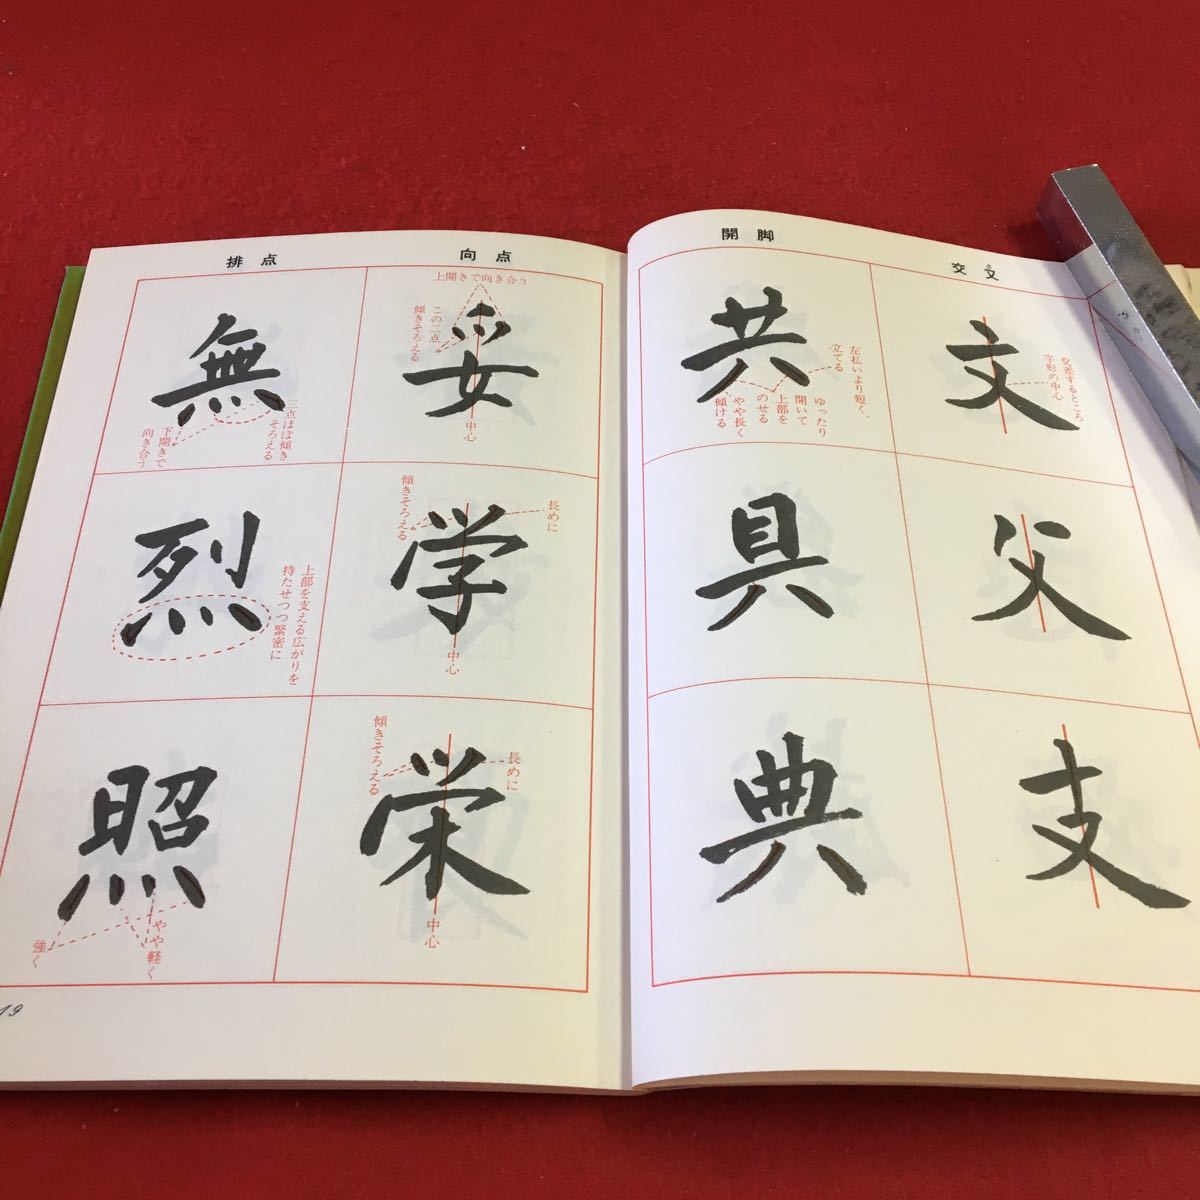 交叉
さ
文
交差するところ
字形の中心
父
支
開脚
共
左払いより短く、
立てる
ゆったり
開いて
上部を
のせる
やや長く
傾ける
具
典
向点
上開きで向き合う
この二点
傾きそろえる
妥
中心
傾きそろえる
長めに
学
中心
傾きそろえる
長めに
栄
中心
排点
無
三点ほぼ傾き
そろえる
下開きで
向き合う
烈
上部を支える広がりを
持たせつつ緊密に
照
やや軽く
強く
19